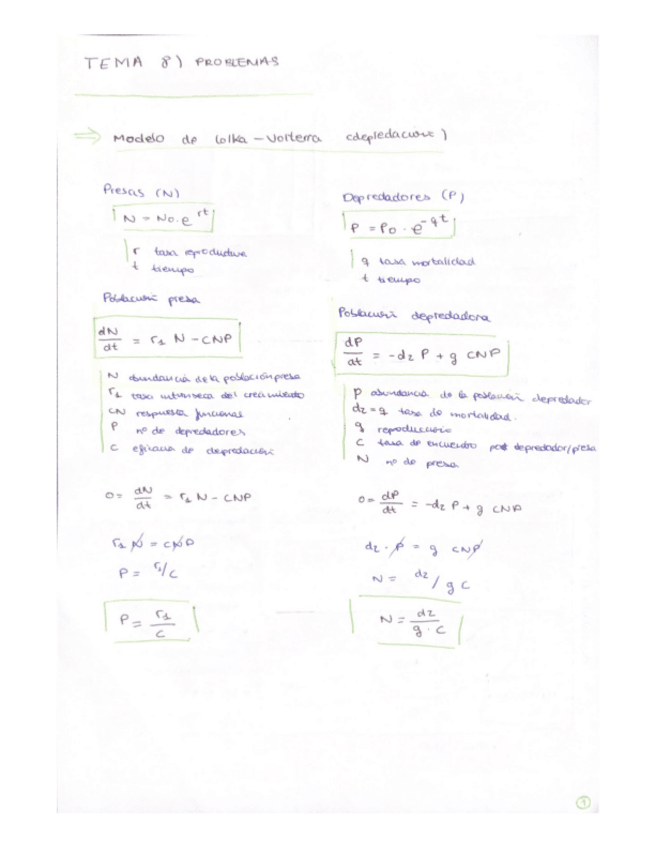 TEMA 8) PROBLEMAS
⇒ Modelo de lotka-Volterra (depredación)
Presas (N)
N = N0.e^rt
r tasa reproductiva
t tiempo
Población presa
dN/dt = r1 N - CNP
N abundancia de la población presa
r1 tasa intrínseca del crecimiento
CN respuesta funcional
P nº de depredadores
C eficacia de depredación
0 = dN/dt = r1 N - CNP
r1 N = CNP
P = r1/C
P = r1/C
Depredadores (P)
P = P0 · e^-qt
q tasa mortalidad
t tiempo
Población depredadora
dP/dt = -d2 P + g CNP
P abundancia de la población depredador
d2 = q tasa de mortalidad.
g reproducción
C tasa de encuentro depredador/presa
N nº de presa
0 = dP/dt = -d2 P + g CNP
d2 · P = g CNP
N = d2 / g C
N = d2/g · C
1